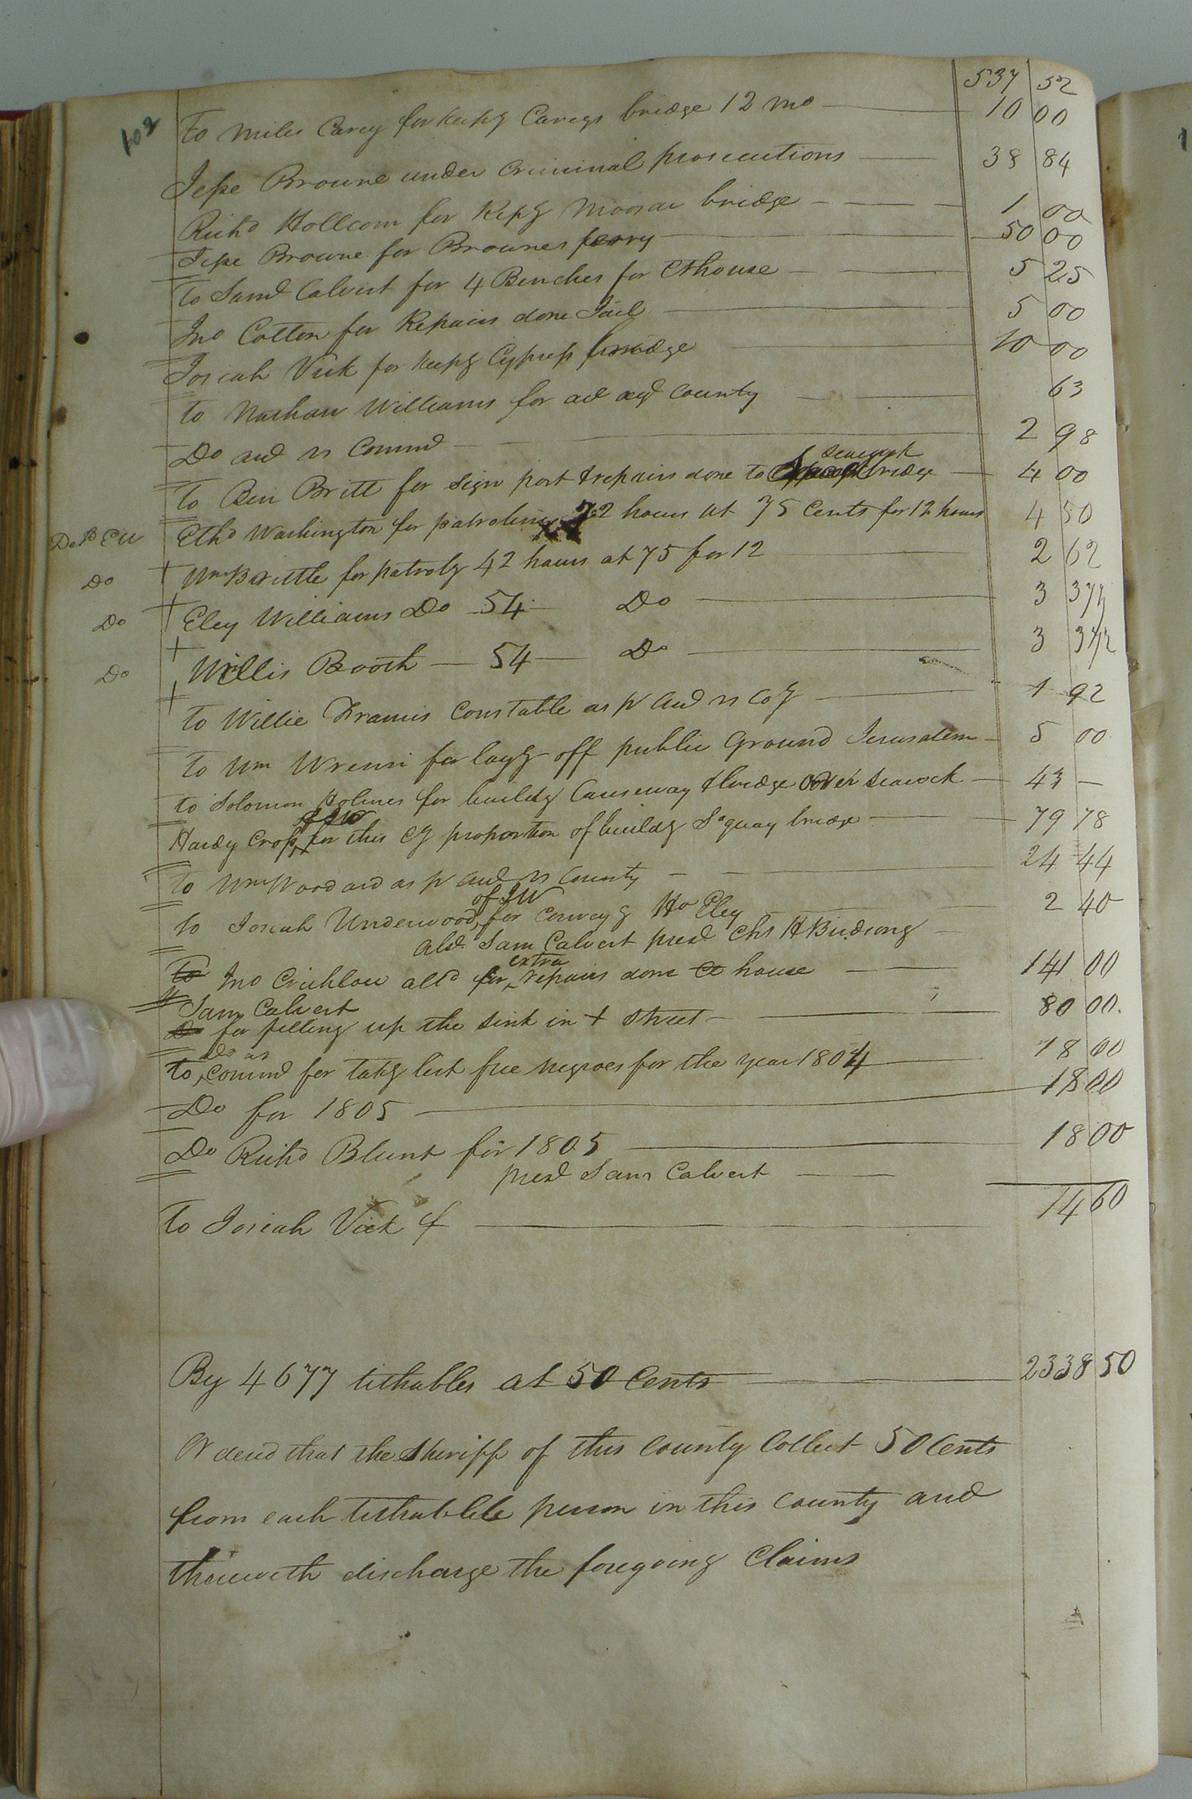 102
537 52
To Miles Carey for keepg Careys bridge 12 mo 10 00
Jesse Browne under criminal prosecutions 38 84
Richd Hollcom for kepg bridge 1 00
Jesse Browne for Brownes ferry 50 00
To Saml Calvert for 4 Benches for Cthouse 5 25
Jno Cotton for Repairs done Jail 5 00
Josiah Vick for keepg Cypress bridge 10 00
to Nathan Williams for county 63
Do Commd 2 98
seacock
to Ben Britt for sign post & repairs done to bridge 4 00
Ethd Washington for patroling 72 hours at 75 Cents for 12 hours 4 50
Do Wm Brittle for patrolg 42 hours at 75 for 12 2 62
Do Eley Williams Do 54 Do 3 37½
Do Willis Booth 54 Do 3 37½
to Willie Francis Constable as pr acct vs Coy 1 92
to Wm Wrenn for layg off public Ground Jerusalem 5 00
to Solomon Holmes for buildg Causeway & bridge over seacock 43 —
Hardy Cross for this Cy proportion of buildg So quay bridge 79 78
to Wm Woodard as pr acct vs County 24 44
of IW
to Josiah Underwood, for conveyg Ho Eley 2 40
alld Sam Calvert presd Chs H Birdsong
extra
To Jno Crichlow alld for repairs done Ct house 141 00
Sam Calvert
Do for filling up the sink in + street 80 00.
Do as
to Commd for takg list free negroes for the year 1804 18 00
Do for 1805 18 00
Do Richd Blunt for 1805 18 00
presd Sam Calvert
to Josiah Vick 14 60
By 4677 tithables at 50 Cents 2338 50
Ordered that the Sheriff of this County Collect 50 Cents
from each tithabble person in this county and
therewith discharge the foregoing Claims